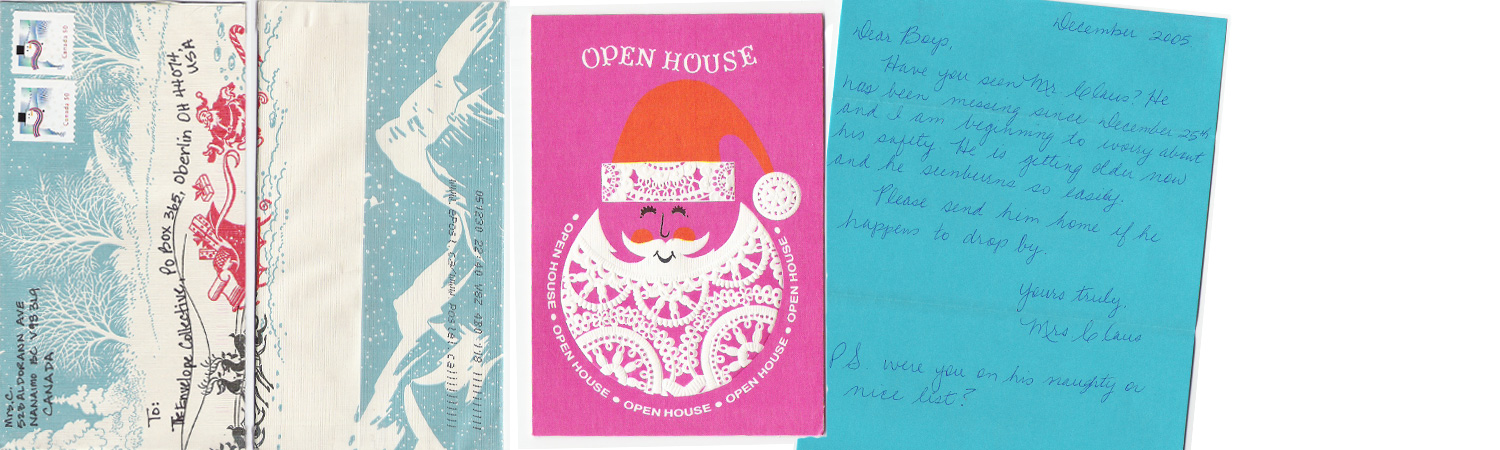 Canada 50
Canada 50
Mrs. C.
528 ALDORANN AVE
NANAIMO BC
CANADA
To:
The Envelope Collective,
PO Box 365, Oberlin OH 44074,
USA
OPEN HOUSE
OPEN HOUSE • OPEN HOUSE • OPEN HOUSE • OPEN HOUSE • OPEN HOUSE
December 2005
Dear Boys,
Have you seen Mr. Claus? He
has been missing since December 25th
and I am beginning to worry about
his safety. He is getting older now
and he sunburns so easily.
Please send him home if he
happens to drop by.
Yours truly,
Mrs Claus
P.S. were you on his naughty or
nice list?